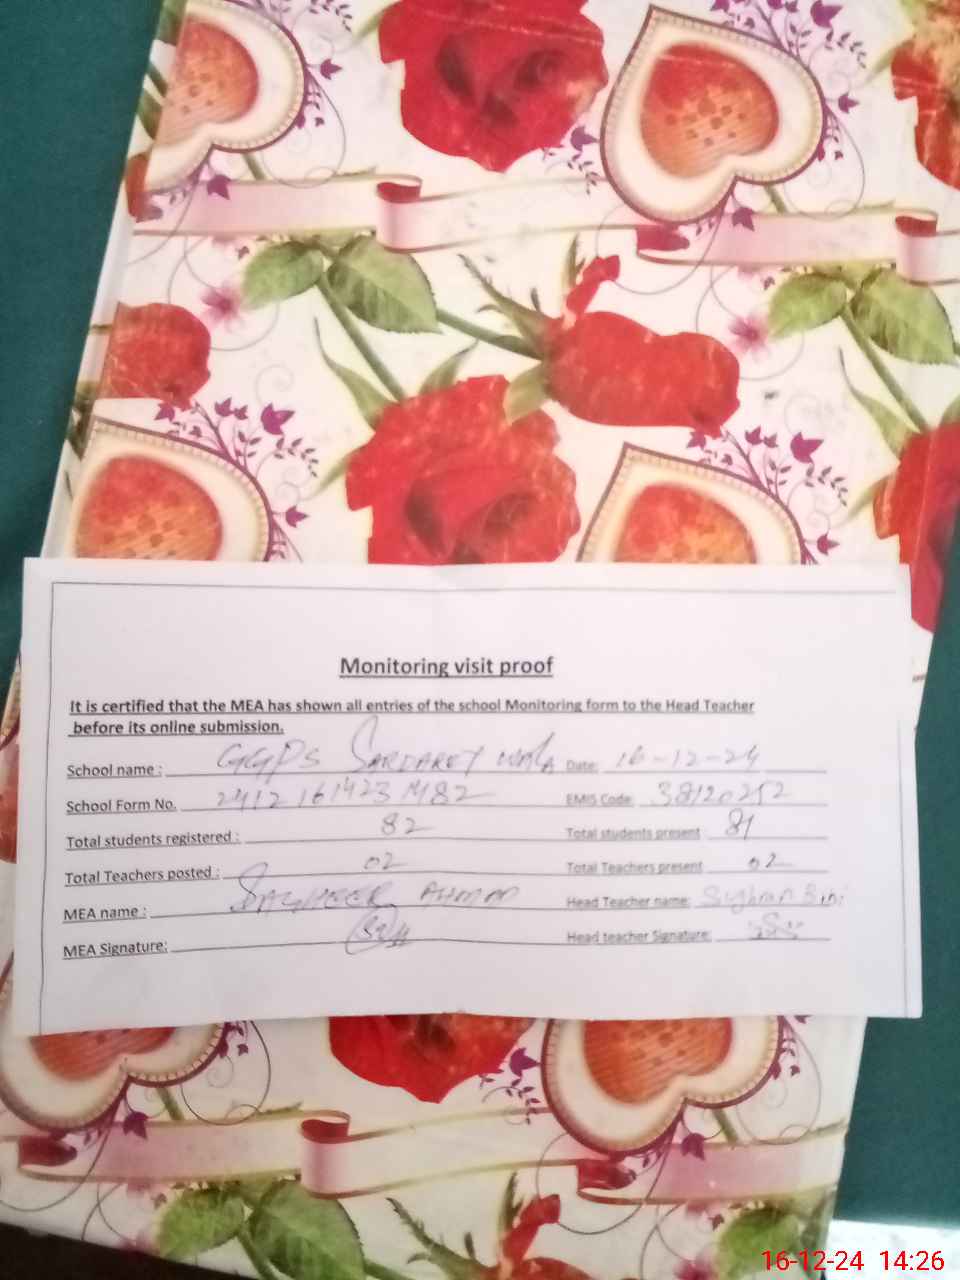 Monitoring visit proof
It is certified that the MEA has shown all entries of the school Monitoring form to the Head Teacher
before its online submission.
School name : GGPS SARDAREY WALA Date: 16-12-24
School Form No. 2412161423 M82 EMIS Code: 38120252
Total students registered : 82 Total students present : 81
Total Teachers posted : 02 Total Teachers present 02
MEA name : SAGHEER AHMAD Head Teacher name: Bibi
MEA Signature: Head teacher Signature:
16-12-24 14:26